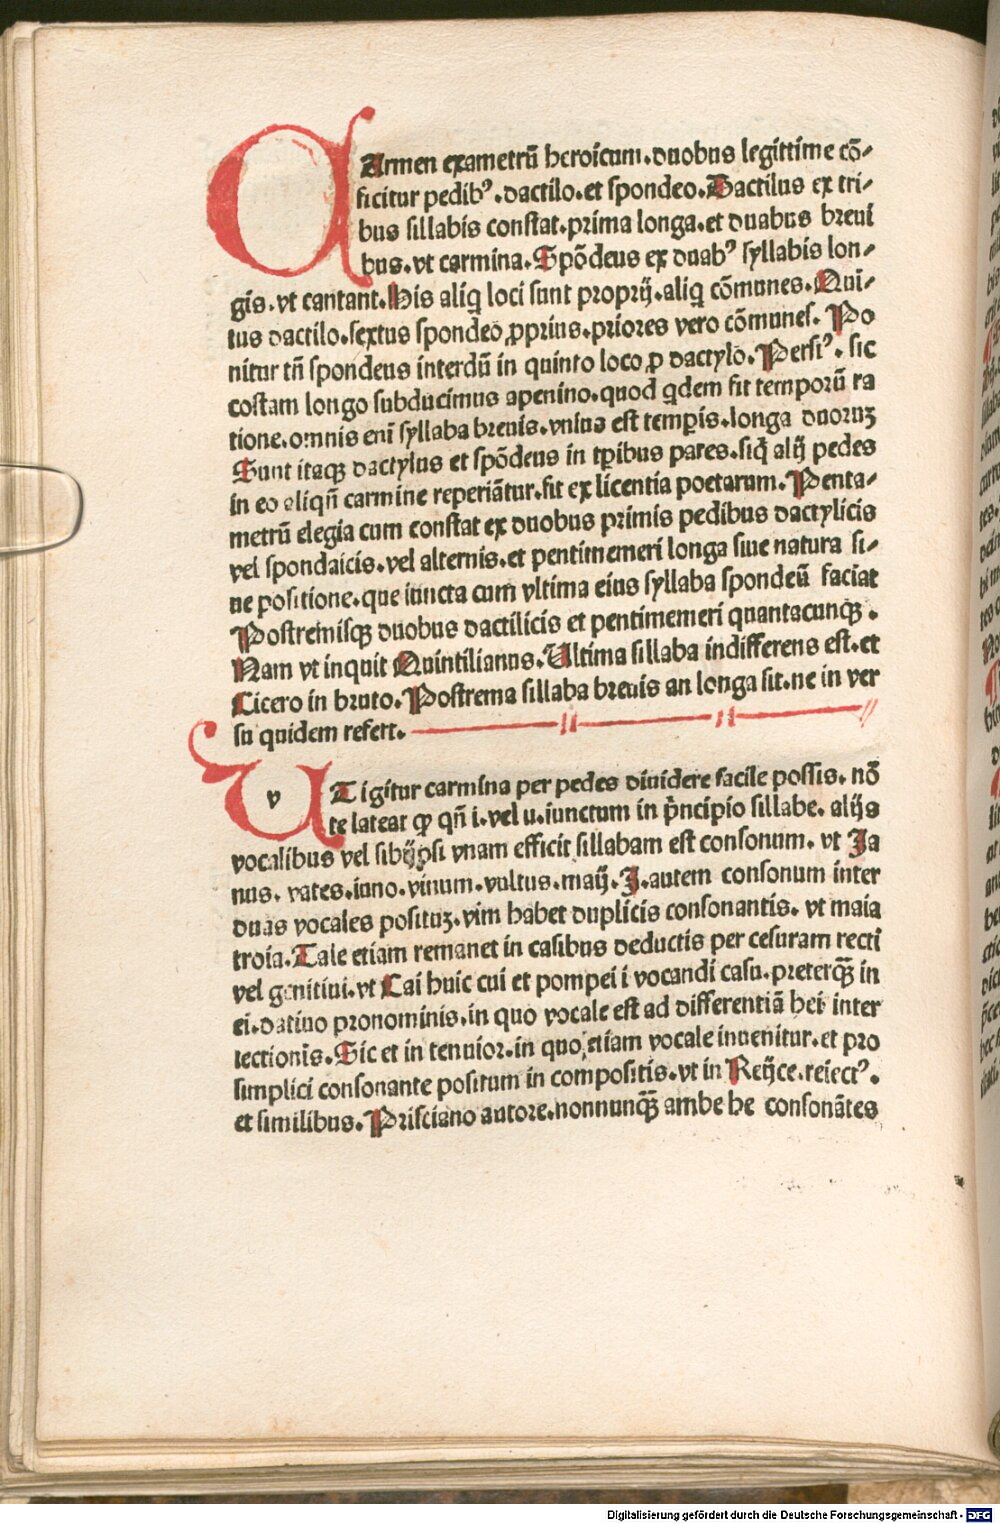 CArmen exametrū heroicum.duobus legittime cō⸗
ficitur pedibꝰ.dactilo.et spondeo.Dactilus ex tri⸗
bus sillabis constat.prima longa.et duabus breui
bus.vt carmina.Spōdeus ex duabꝰ syllabis lon⸗
gis.vt cantant.His aliq̄ loci sunt proprij.aliq̄ cōmunes.Qui⸗
tus dactilo.sextus spondeo ꝓprius.priores vero cōmunes. Po
nitur tñ spondeus interdū in quinto loco ꝓ dactylo.Persiꝰ. sic
costam longo subducimus apenino.quod qdem fit temporū ra
tione.omnis eni syllaba breuis.vnius est temꝑis.longa duoruꝫ
Sunt itaqꝫ dactylus et spōdeus in tꝑibus pares.siq̄ alij pedes
in eo aliqñ carmine reperiātur.fit ex licentia poetarum.Penta⸗
metrū elegia cum constat ex duobus primis pedibus dactylicis
vel spondaicis.vel alternis.et pentimemeri longa siue natura si⸗
ue positione.que iuncta cum vltima eius syllaba spondeū faciat
Postremisqꝫ duobus dactilicis et pentimemeri quantacunqꝫ.
Nam vt inquit Quintilianus.Ultima sillaba indifferens est.et
Cicero in bruto.Postrema sillaba breuis an longa sit.ne in ver
su quidem refert.
v UT igitur carmina per pedes diuidere facile possis. nō
te lateat ꝙ qñ i.vel u.iunctum in p̄ncipio sillabe. alijs
vocalibus vel sibijpsi vnam efficit sillabam est consonum. vt Ja
nus. vates.iuno.vinum.vultus.maij.J.autem consonum inter
duas vocales posituꝫ.vim habet duplicis consonantis. vt maia
troia.Tale etiam remanet in casibus deductis per cesuram recti
vel genitiui.vt Cai huic cui et pompei i vocandi casu.preterqꝫ̄ in
ei.datiuo pronominis.in quo vocale est ad differentiā hei inter
iectionis.Sic et in tenuior.in quo etiam vocale inuenitur.et pro
simplici consonante positum in compositis.vt in Reijce.reiectꝰ.
et similibus.Prisciano autore.nonnunqꝫ̄ ambe he consonātes
Digitalisierung gefördert durch die Deutsche Forschungsgemeinschaft - DFG